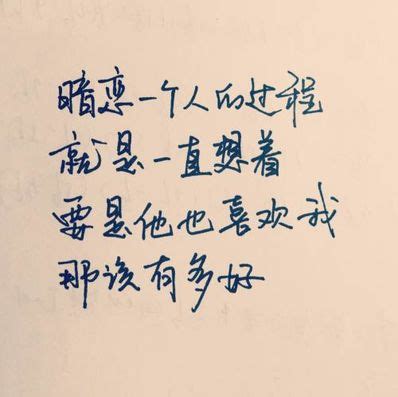 暗恋一个人的过程
就是一直想着
要是他也喜欢我
那该有多好